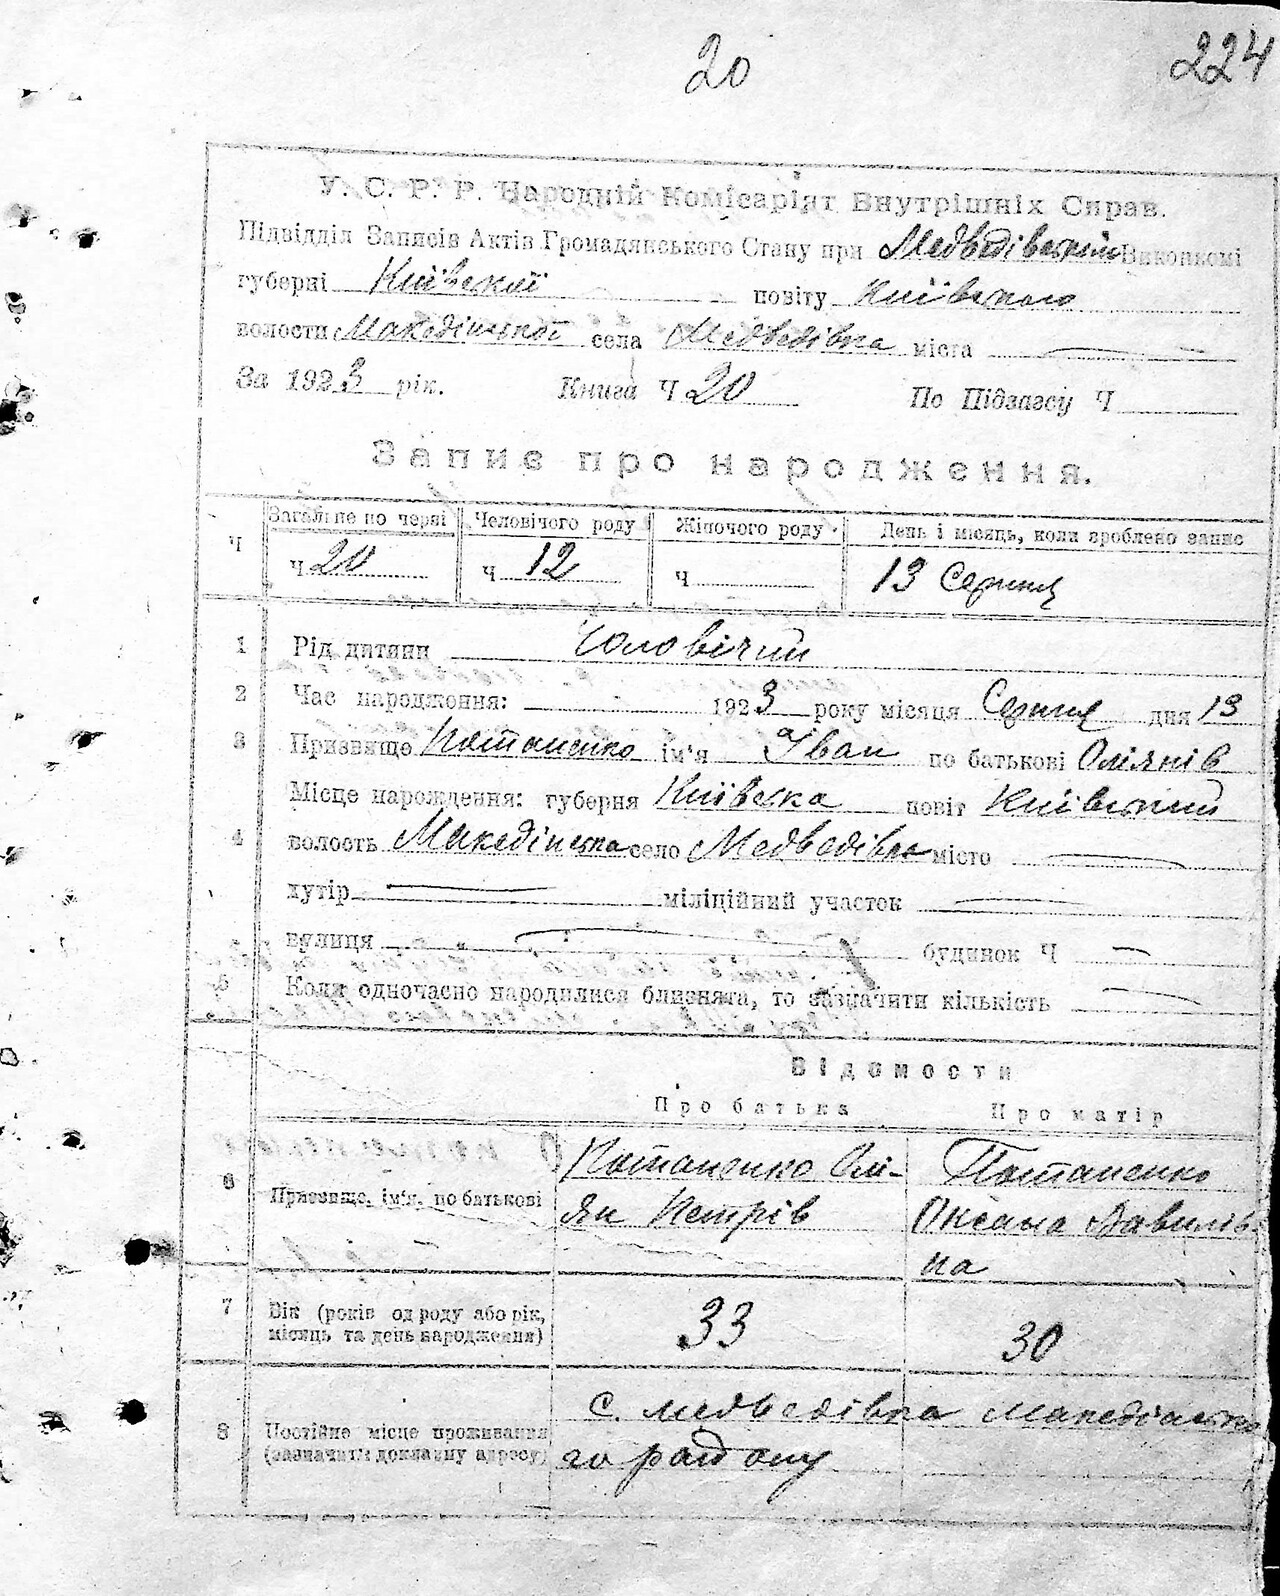 20
224
У. С. Р. Р. Народній Комісаріят Внутрішніх Справ.
Підвідділ Записів Актів Громадянського Стану при Медведівськім Виконкомі
губерні Київської повіту Київського
волости Македінської села Медведівка міста
За 1923 рік. Книга Ч 20 По Підзагсу Ч
Запис про народження.
Ч Загальне по черві Человічого роду Жіночого роду День і місяць, коли зроблено запис
ч 20 ч 12 ч 13 Серпня
1 Рід дитяни Чоловічий
2 Час народження: 1923 року місяця Серпня дня 13
3 Призвище Потапенко ім'я Іван по батькові Оліянів
Місце нарождення: губерня Київська повіт Київський
4 волость Македінська село Медведівка місто
хутір міліційний участок
вулиця будинок Ч
5 Коли одночасно народилися близнята, то зазначити кількість
Відомости
Про батька Про матір
6 Призвище, ім'я, по батькові
Потапенко Олі-
ян Петрів
Потапенко
Оксана Вавилів-
на
7 Вік (років од роду або рік,
місяць та день народження)
33 30
8 Постійне місце проживання
(зазначити докладну адресу)
с. Медведівка Македінсько
го району